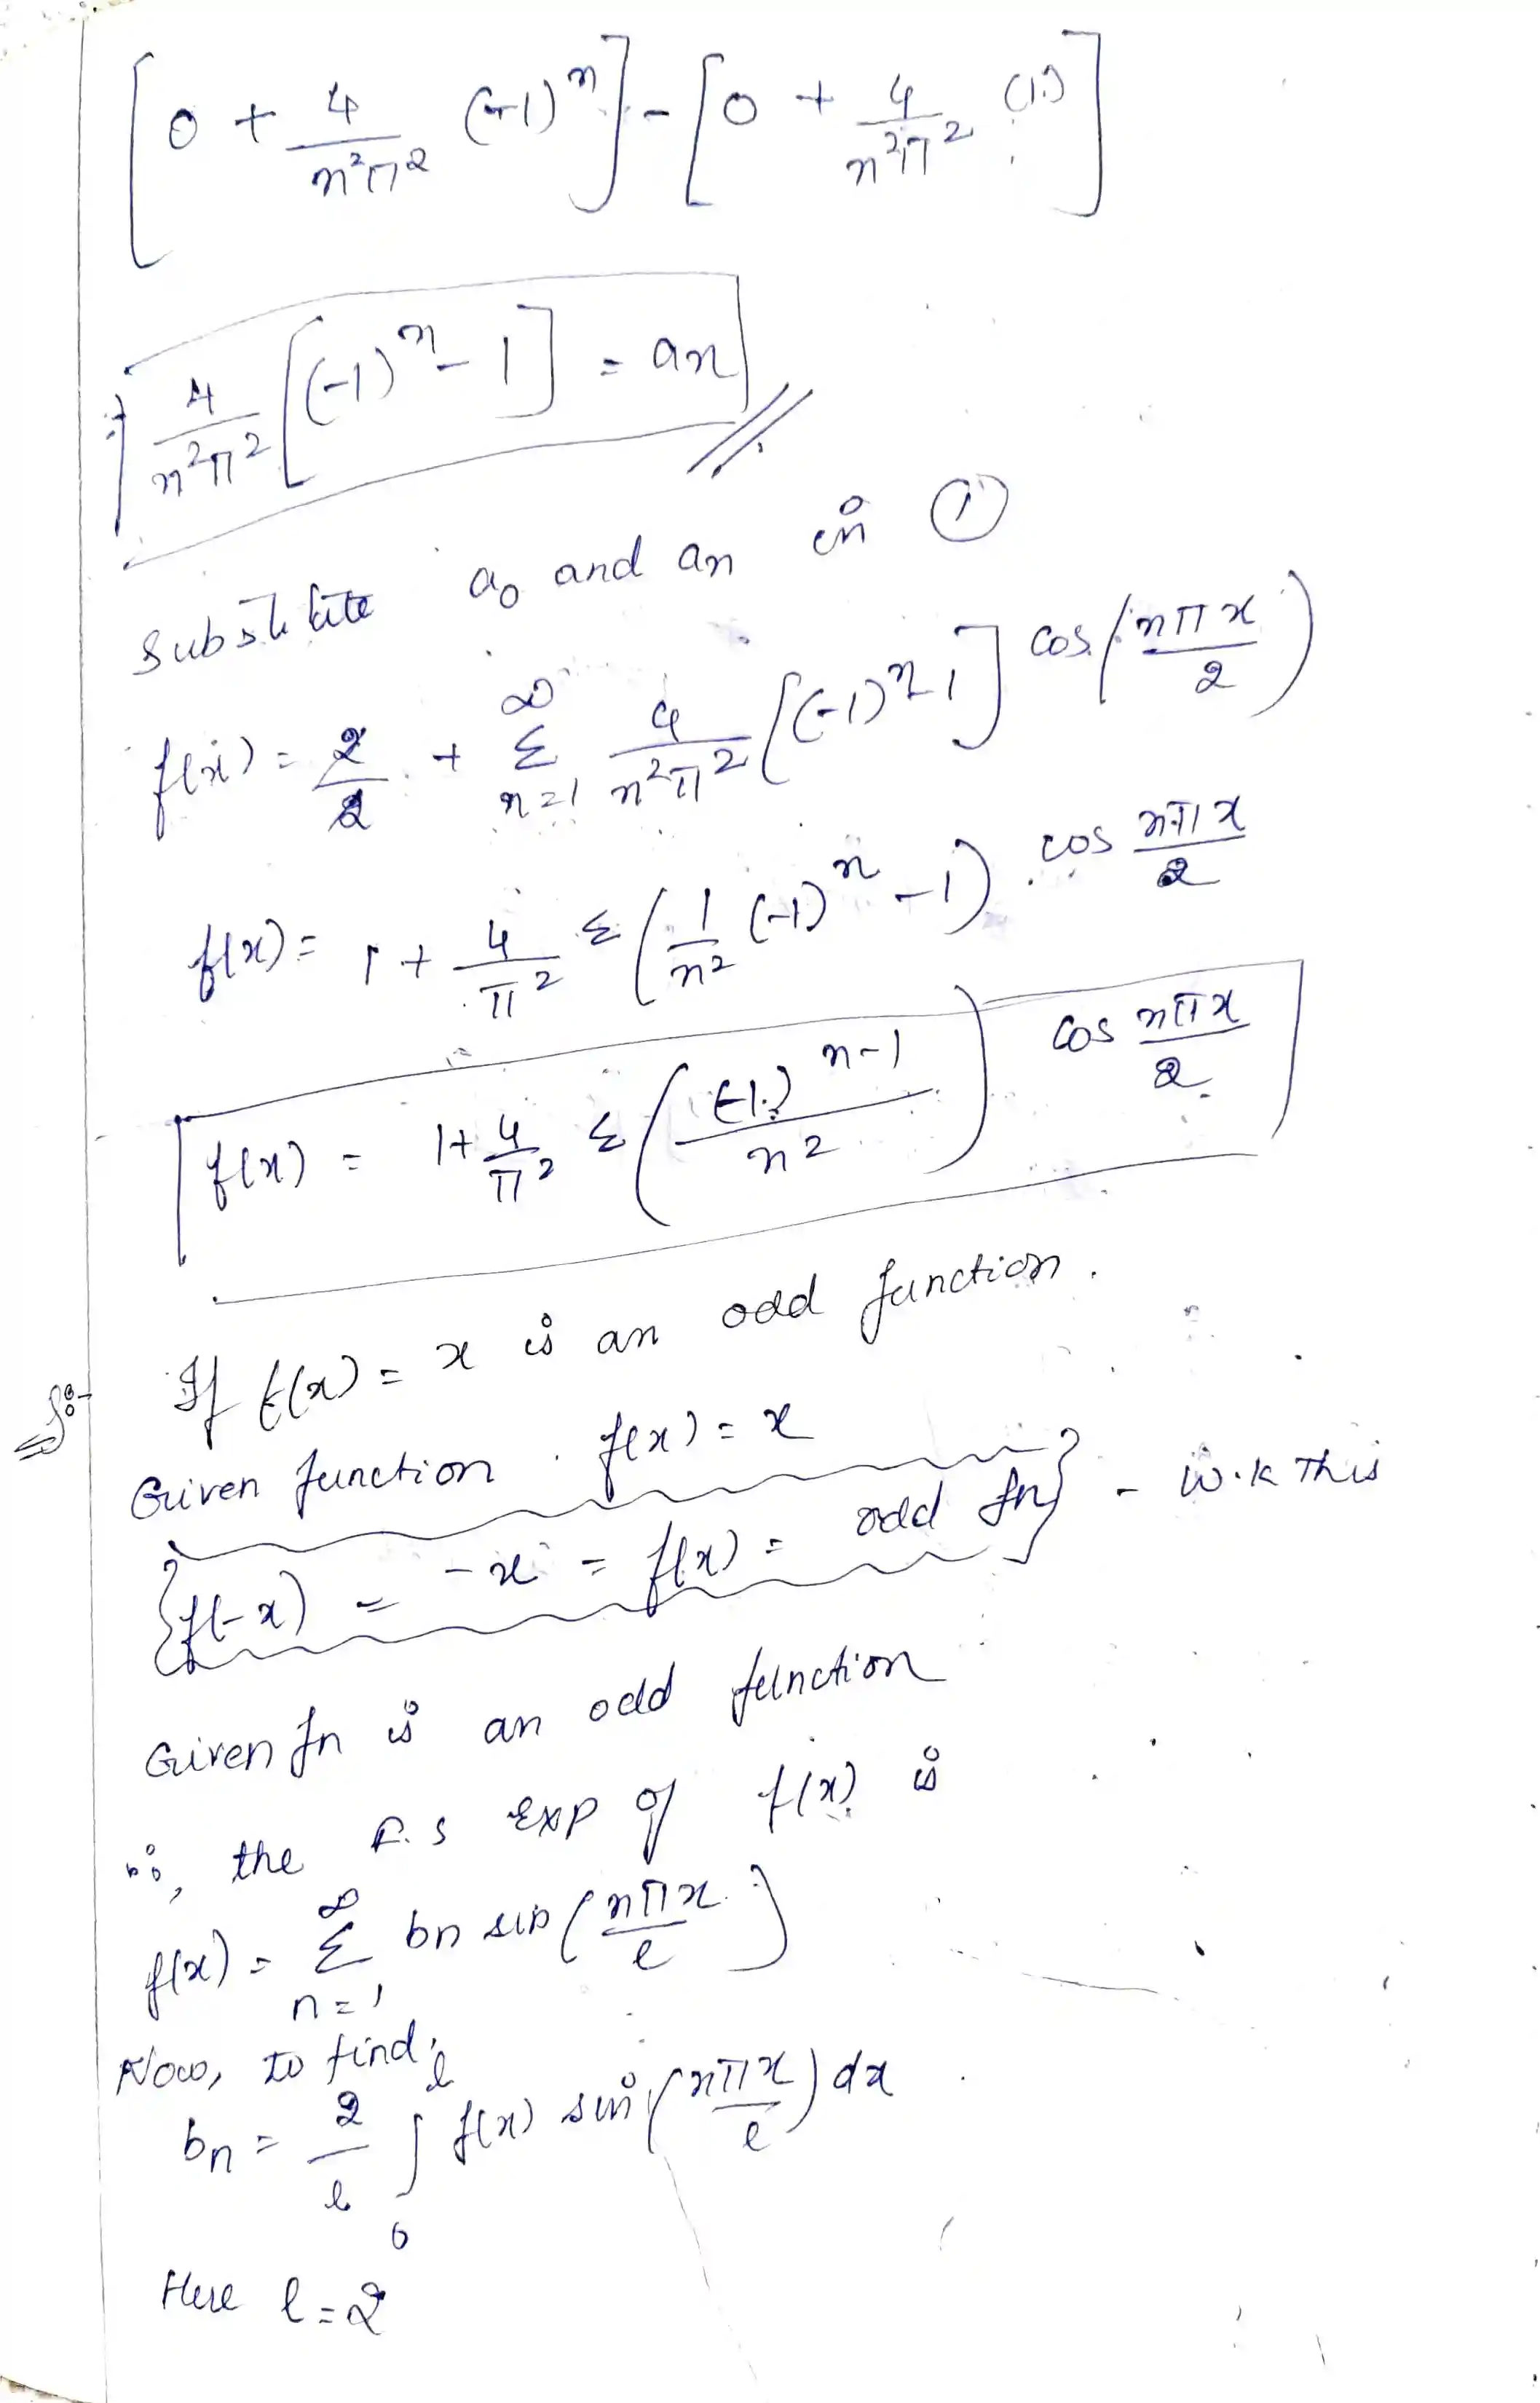 [0 + 4/n²π² (-1)ⁿ] - [0 + 4/n²π² (1)]
⇒ 4/n²π² [(-1)ⁿ - 1] = an //
Substitute a₀ and an in ①
f(x) = 2/2 + Σ_{n=1}^{∞} 4/n²π² [(-1)ⁿ-1] cos (nπx/2)
f(x) = 1 + 4/π² Σ (1/n² (-1)ⁿ - 1) cos nπx/2
f(x) = 1 + 4/π² Σ ((-1)ⁿ⁻¹/n²) cos nπx/2
If f(x) = x is an odd function.
Given function f(x) = x
{f(-x) = -x = f(x) = odd fn} - W.K This
Given fn is an odd function
∴, the F.S Exp of f(x) is
f(x) = Σ_{n=1}^{∞} bn sin (nπx/l)
Now, to find,
bn = 2/l ∫₀ˡ f(x) sin (nπx/l) dx
Here l = 2